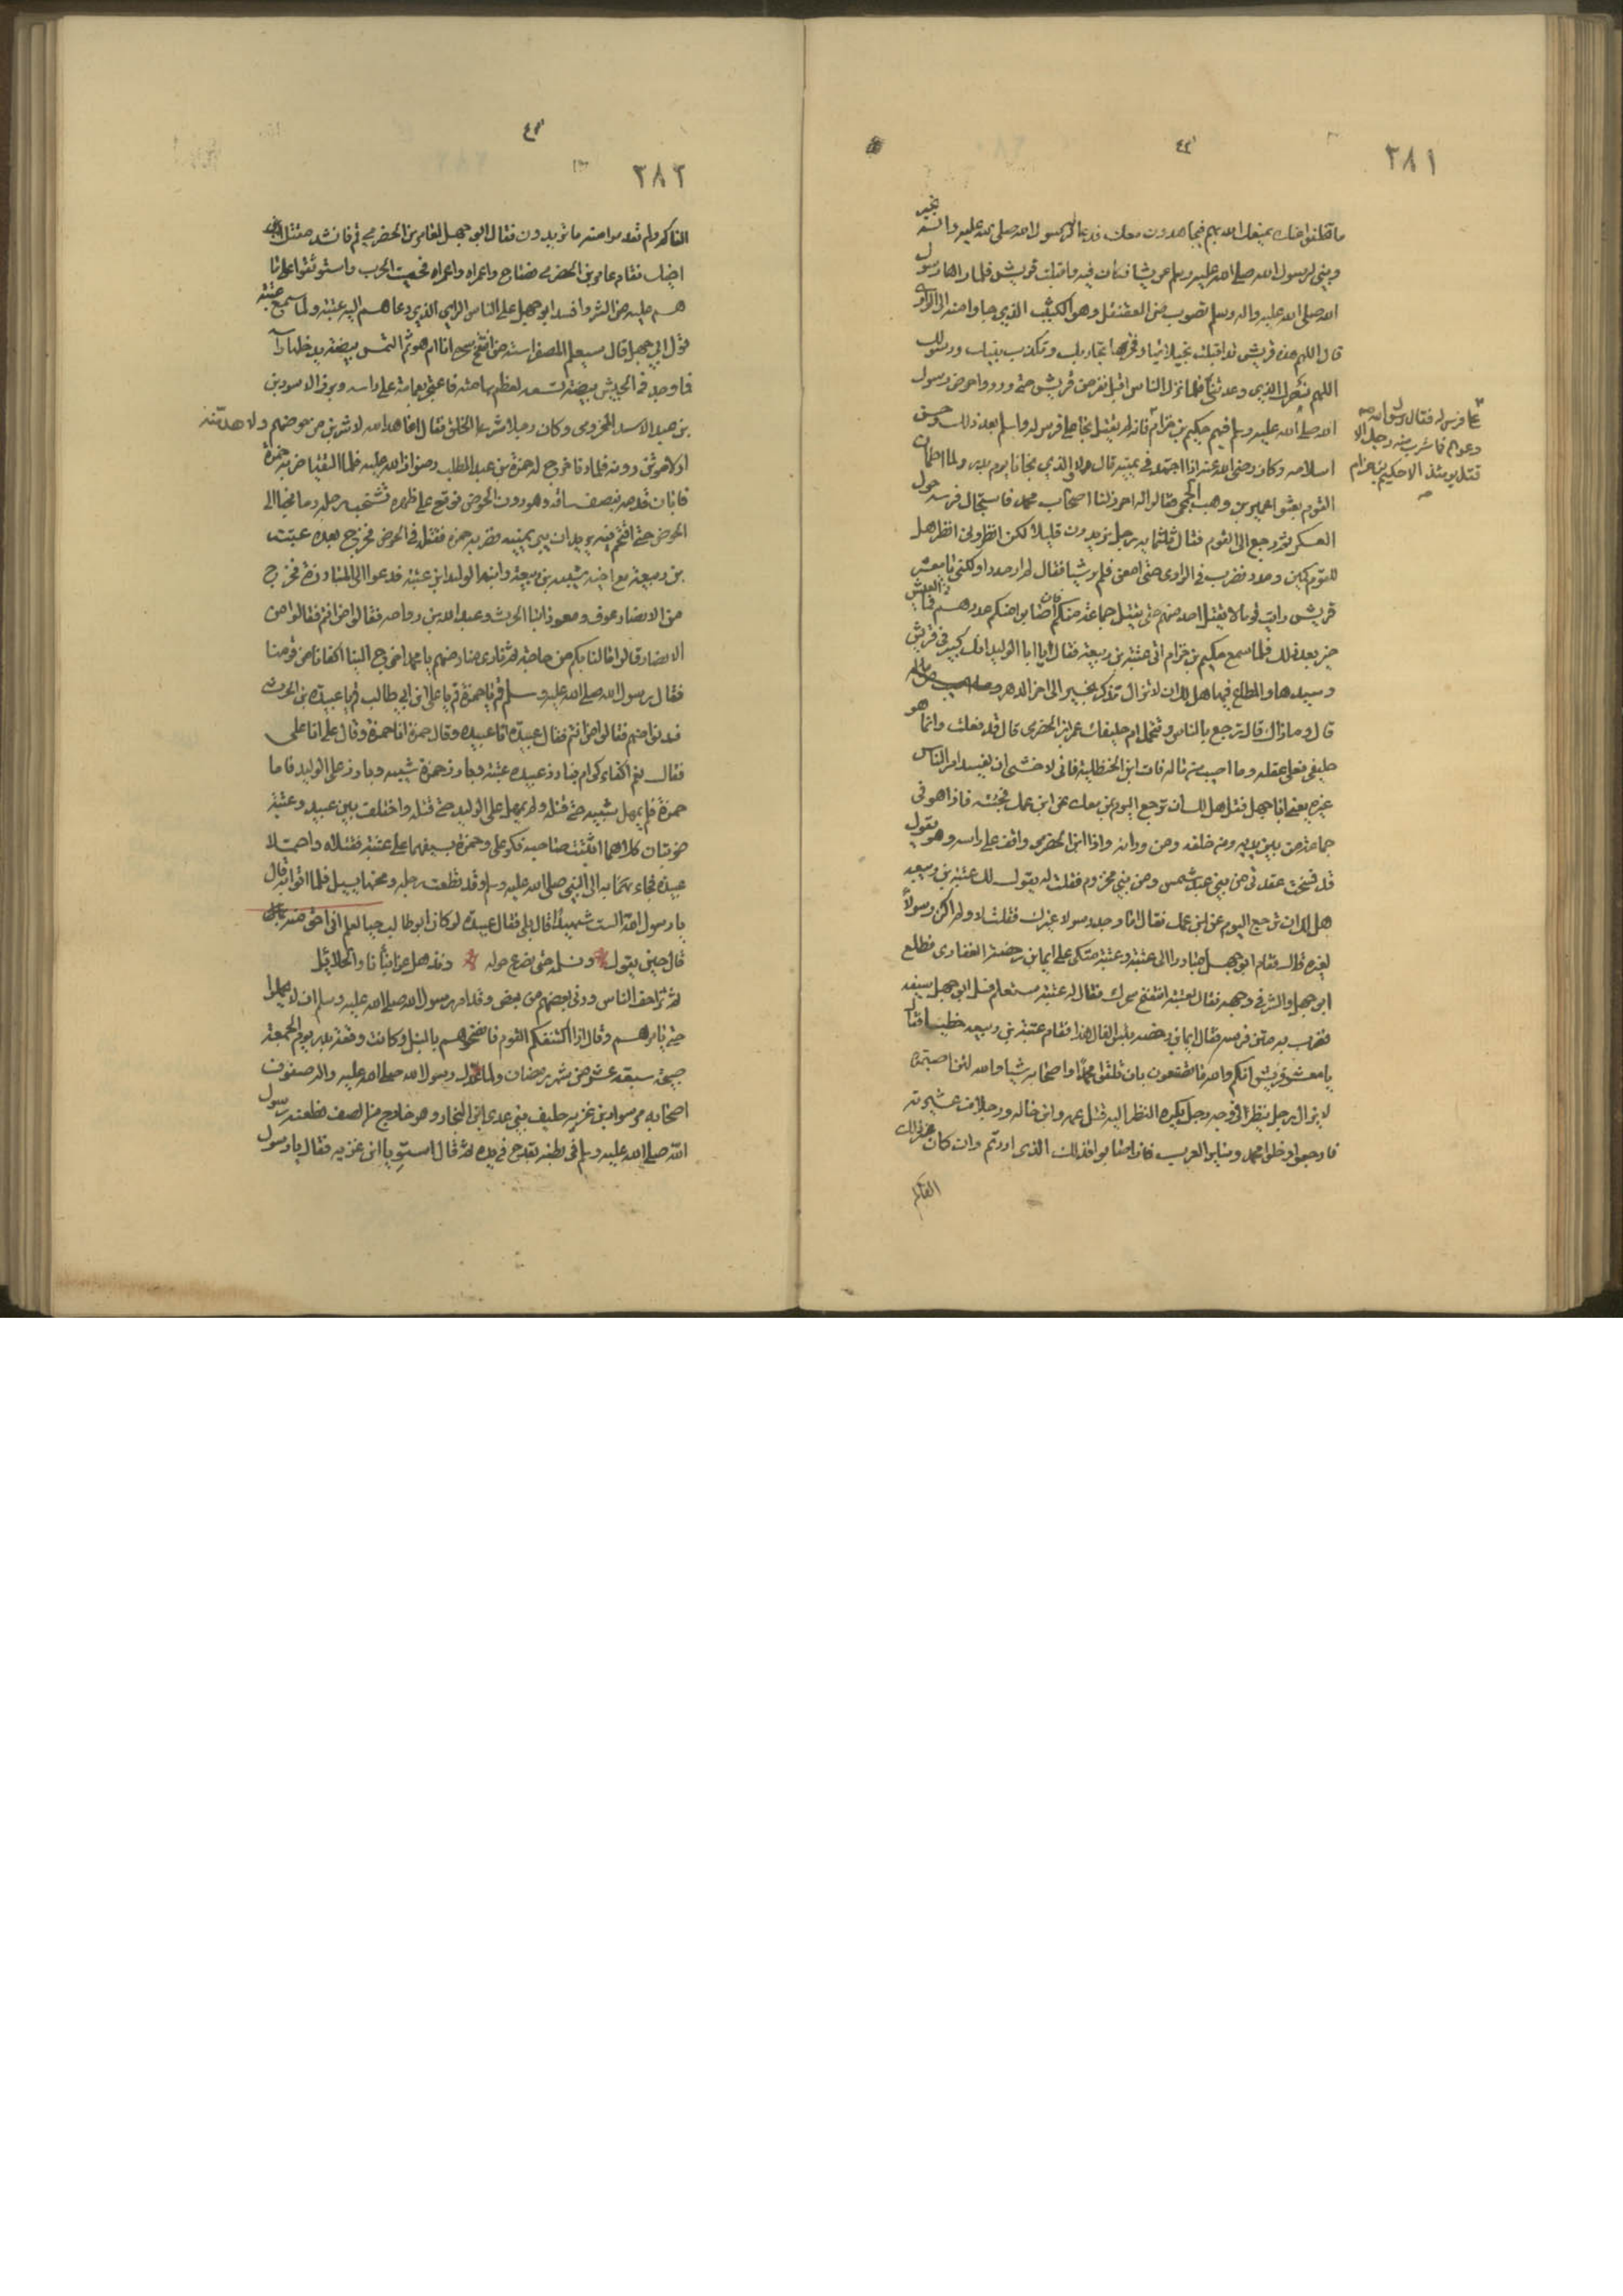 ٢٨١
ما تخلفوا عنك يمنعك الله بهم يناصحون معك فدعا له رسول الله صلى الله عليه واله بخير
وبنى لرسول الله صلى الله عليه وسلم عريشا فكان فيه واقبلت قريش فلما راها رسول
الله صلى الله عليه واله وسلم تصوب من العقنقل وهو الكثيب الذي جاوا منه الى الوادي
قال اللهم هذه قريش قد اقبلت بخيلائها وفخرها تحادك وتكذب رسولك
اللهم فنصرك الذي وعدتني فلما نزل الناس اقبل نفر من قريش حتى وردوا حوض رسول
الله صلى الله عليه وسلم فيهم حكيم بن حزام فانه لم يقتل نجا على فرس له واسلم بعد ذلك وحسن
اسلامه وكان رضي الله عنه اذا اجتهد في يمينه قال لا والذي نجانا يوم بدر ولما اطمان
القوم بعثوا عمير بن وهب الجمحي فقالوا له احرز لنا اصحاب محمد فاستجال فرسه حول
العسكر ثم رجع الى القوم فقال ثلثمايه رجل يزيدون قليلا لكن انظروني انظر هل
للقوم كمين ومدد فضرب في الوادي حتى امعن فلم ير شيا فقال لم ار مددا ولكني يا معشر
قريش رايت قوما لا يقتل احد منهم حتى يقتل جماعة منكم فاذا اصابوا منكم عددهم فما في العيش
خير بعد ذلك فلما سمع حكيم بن حزام اتى عتبة بن ربيعة فقال يا ابا الوليد انك كبير في قريش
وسيدها والمطاع فيها هل لك ان لا تزال تذكر بخير الى اخر الدهر
قال وما ذاك قال ترجع بالناس وتحمل امر حليفك عمرو بن الحضرمي قال قد فعلت وانما هو
حليفي فعلي عقله وما اصيب من ماله فات ابن الحنظلية فاني لا خشى ان يفسد امر الناس
غيره يعني ابا جهل فقل هل لك ان ترجع اليوم بمن معك عن ابن عمك فجئته فاذا هو في
جماعة من بين يديه ومن خلفه ومن ورائه واذا ابن الحضرمي واقف على راسه وهو يقول
قد فسخت عقدي من بني عبد شمس ومن بني مخزوم فقلت له يقول لك عتبة بن ربيعة
هل لك ان ترجع اليوم عن ابن عمك فقال اما وجد رسولا غيرك فقلت لا ولم اكن رسولا
لغيره قال فقام ابو جهل مبادرا الى عتبة وعتبة متكى على ايما بن رحضة الغفاري فطلع
ابو جهل والشر في وجهه فقال لعتبة انتفخ سحرك فقال له عتبة ستعلم فسل ابو جهل سيفه
فضرب به متن فرسه فقال ايما بن رحضه بئس الفال هذا فقام عتبة بن ربيعه خطيبا فقال
يا معشر قريش انكم والله ما تصنعون بان تلقوا محمدا واصحابه شيا والله لئن اصبتموه
لا يزال رجل ينظر الى وجه رجل يكره النظر اليه قتل ابن عمه وابن خاله ورجلا من عشيرته
فارجعوا وخلوا محمد وسائر العرب فان اصابوا فذلك الذي اردتم وان كان غير ذلك
الفاكم
على فرس له فقال رسول الله
دعوهم فما شرب منه رجل الا
قتل يومئذ الا حكيم بن حزام
صح
٢٨٢
الفاكم ولم تعدموا منه ما تريدون فقال ابو جهل لعامر بن الحضرمي قم فانشد مقتل
اخيك فقام عامر بن الحضرمي فصاح واعمراه واعمراه فحميت الحرب واستوثقوا على ما
هم عليه من الشر وافسد ابو جهل على الناس الراي الذي دعاهم اليه عتبة ولما سمع عتبة
قول ابي جهل قال سيعلم المصفر استه من انتفخ سحره انا ام هو ثم التمس بيضة يدخلها راسه
فما وجد في الجيش بيضة تسعه لعظم هامته فاعتجر بعمامة على راسه وبرز الاسود بن
بن عبد الاسد المخزومي وكان رجلا شرسا الخلق فقال اعاهد الله لاشربن من حوضهم ولاهدمنه
او لاموتن دونه فلما دنا خرج له حمزة بن عبد المطلب رضوان الله عليه فلما التقيا ضربه حمزة
فابان قدمه بنصف ساقه وهو دون الحوض فوقع على ظهره تشخب رجله دما فجا الى
الحوض حتى اقتحم فيه يريد ان يبر يمينه فضربه حمزه فقتله في الحوض فخرج بعده عتبة
بن ربيعة مع اخيه شيبه بن ربيعة وابنه الوليد ابن عتبة فدعوا الى المبارزة فخرج
من الانصار عوف ومعوذ ابنا الحرث وعبد الله بن رواحه فقالوا من انتم فقالوا من
الانصار قالوا ما لنا بكم من حاجة ثم نادى مناديهم يا محمد اخرج الينا اكفاءنا من قومنا
فقال رسول الله صلى الله عليه وسلم قم يا حمزة قم يا علي ابن ابي طالب قم يا عبيدة بن الحرث
فدنوا منهم فقالوا من انتم فقال عبيدة انا عبيده وقال حمزة انا حمزة وقال علي انا علي
فقال نعم اكفاء كرام فبارز عبيده عتبة وبارز حمزة شيبه وبارز علي الوليد فاما
حمزة فلم يمهل شيبه حتى قتله ولم يمهل علي الوليد حتى قتله واختلف بين عبيده وعتبة
ضربتان كلاهما اثبت صاحبه فكر علي وحمزة بسيفهما على عتبة فقتلاه واحتملا
عبيدة فجاء به الى النبي صلى الله عليه وسلم وقد قطعت رجله ومخها يسيل فلما اتوا به قال
يا رسول الله الست شهيدا قال بلى فقال عبيدة لو كان ابو طالب حيا لعلم اني احق منه
قال حين يقول ونسلمه حتى نصرع حوله ونذهل عن ابنائنا والحلائل
ثم تزاحف الناس ودنى بعضهم من بعض وقد امر رسول الله صلى الله عليه وسلم ان لا يحملوا
حتى يامرهم وقال اذا اكتنفكم القوم فانضحوهم بالنبل وكانت وقعة بدر يوم الجمعة
صبيحة سبعة عشر من شهر رمضان ولما عدل رسول الله صلى الله عليه واله صفوف
اصحابه مر سواد بن غزيه حليف بني عدي ابن النجار وهو خارج من الصف فطعنه رسول
الله صلى الله عليه وسلم في بطنه بقدح في يده ثم قال استو يا ابن غزيه فقال يا رسول